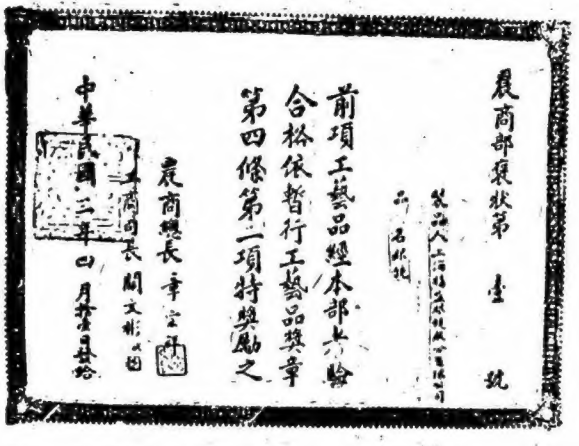 農商部褒狀第壹號
製品人上海
品名
前項工藝品經本部考驗
合格依暫行工藝品獎章
第四條第二項特獎勵之
農商總長章宗祥
工商司長閻文彬
中華民國三年四月拾壹日發給